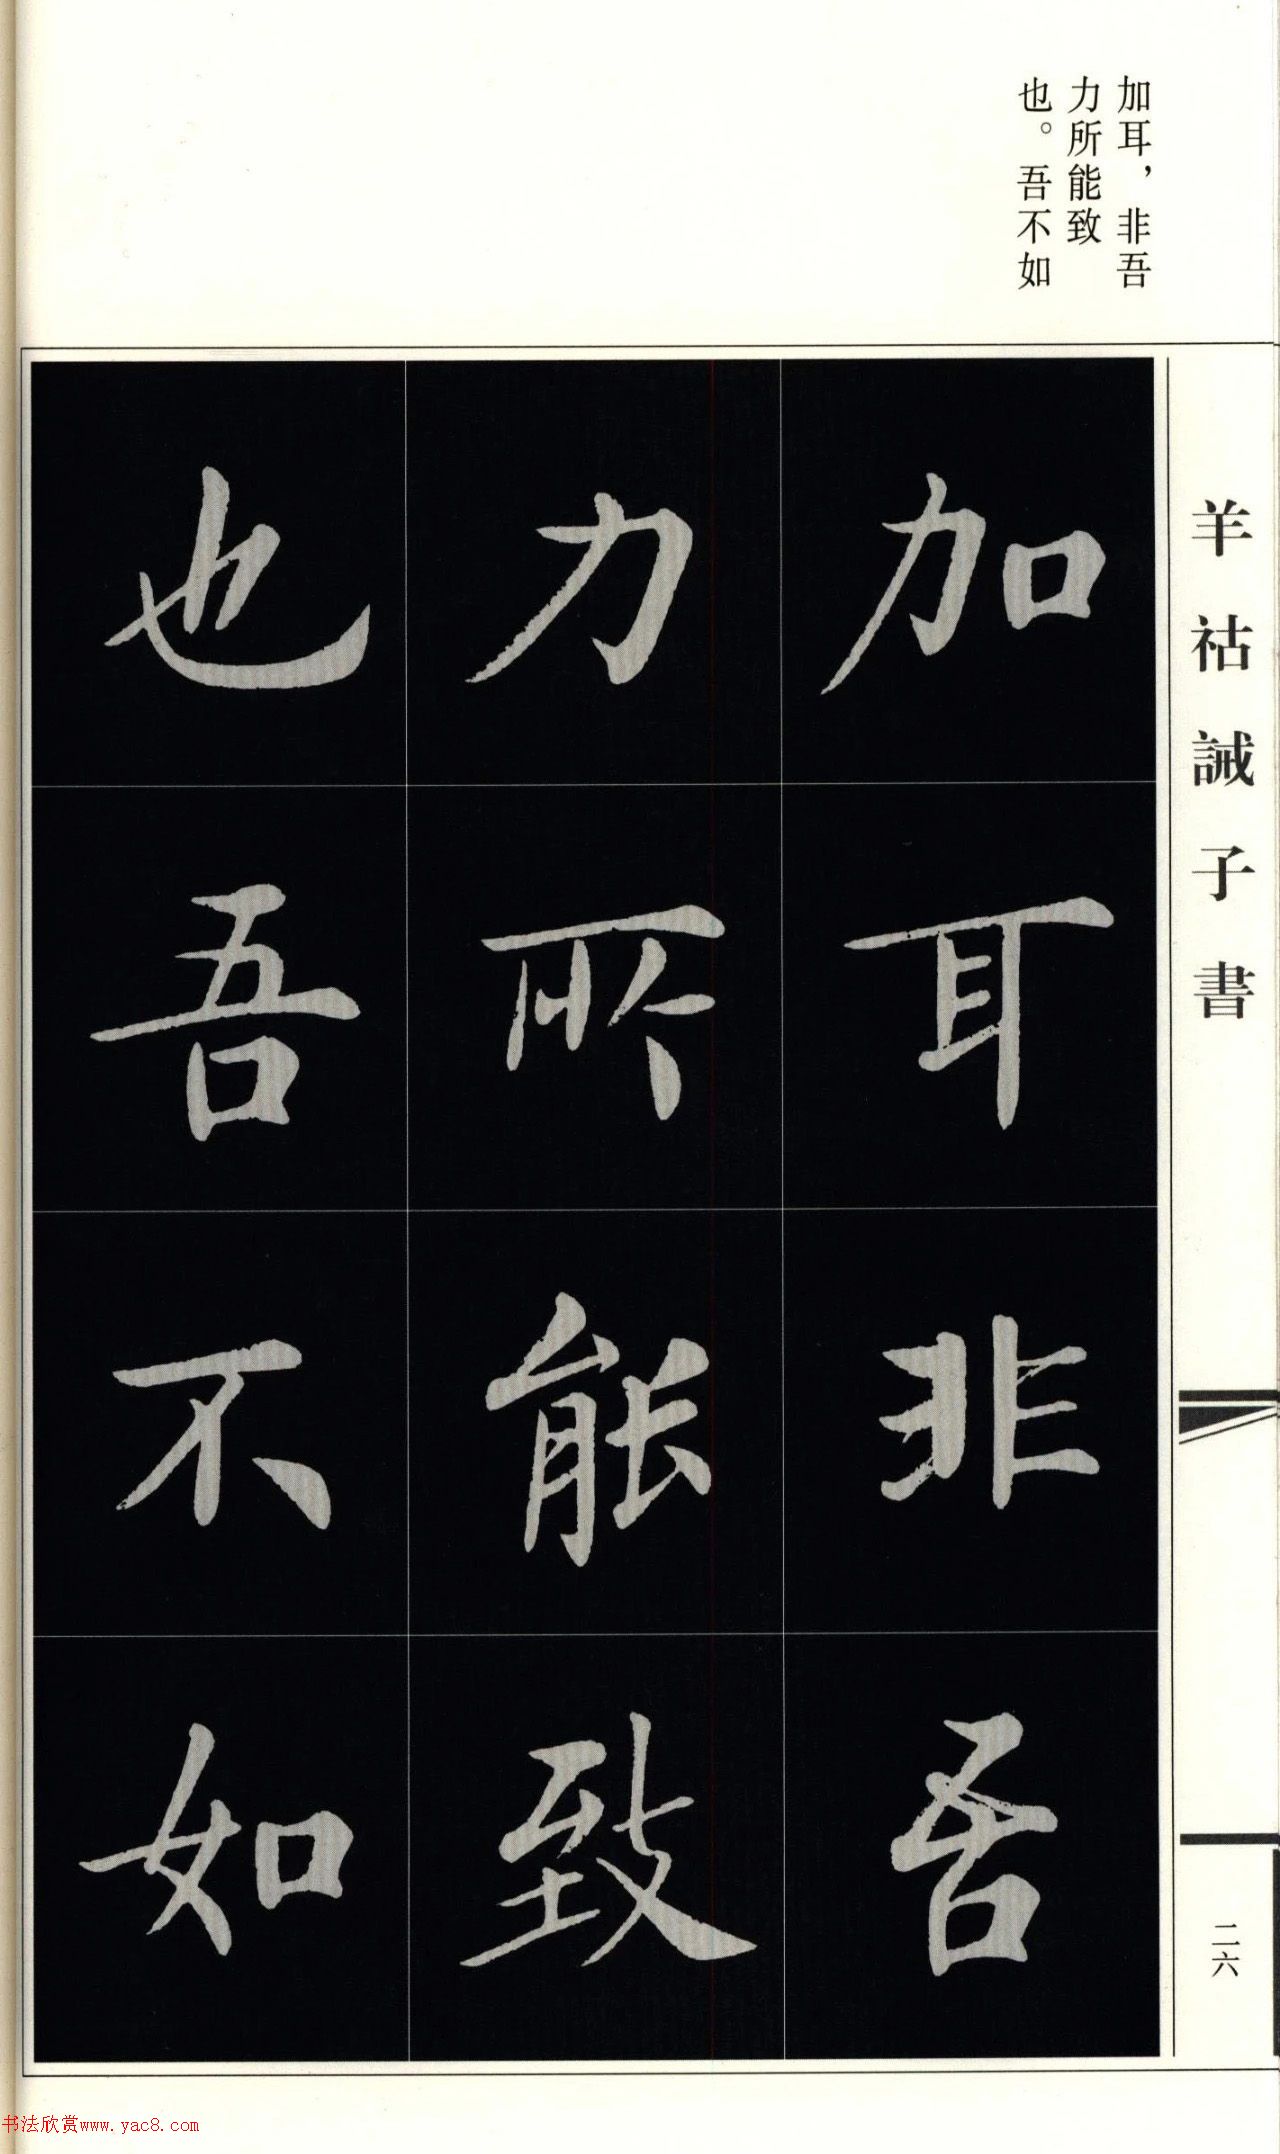 加耳，非吾
力所能致
也。吾不如
羊祜誡子書
加耳非吾
力所能致
也吾不如
二六
书法欣赏www.yac8.com